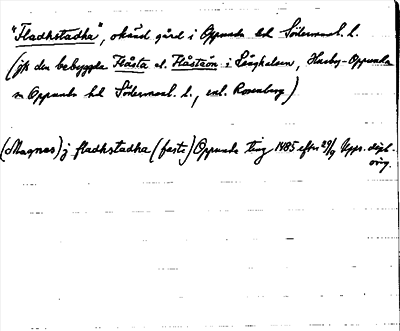 "Fladkstadha", okänd gård i Oppunda hd Södermanl. l.
(jfr den bebyggda Flåsta el. Flåström i Länghalsen, Husby-Oppunda
sn Oppunda hd Södermanl. l., enl. Rosenberg)
(Magnus) j fladkstadha (faste) Oppunda ting 1485 efter 29/9 Upps. dipl.
orig.